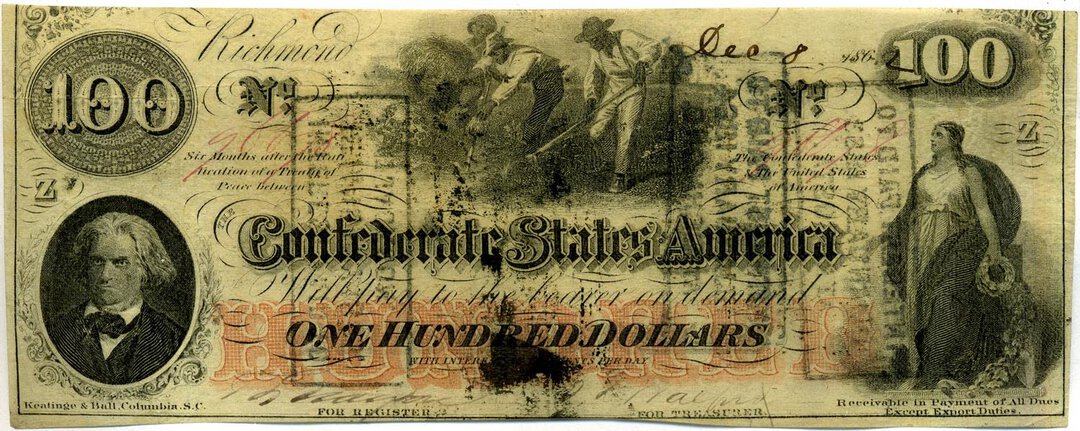 Richmond
Dec 8
186
100
100
No
No
Six Months after the Rati
fication of a Treaty of
Peace between
The Confederate States
& The United States
of America
Z
Z
Confederate States America
Will pay to the bearer on demand
HUNDRED
ONE HUNDRED DOLLARS
WITH INTEREST CENTS PER DAY
Keatinge & Ball, Columbia, S.C.
FOR REGISTER
FOR TREASURER
Receivable in Payment of All Dues
Except Export Duties.